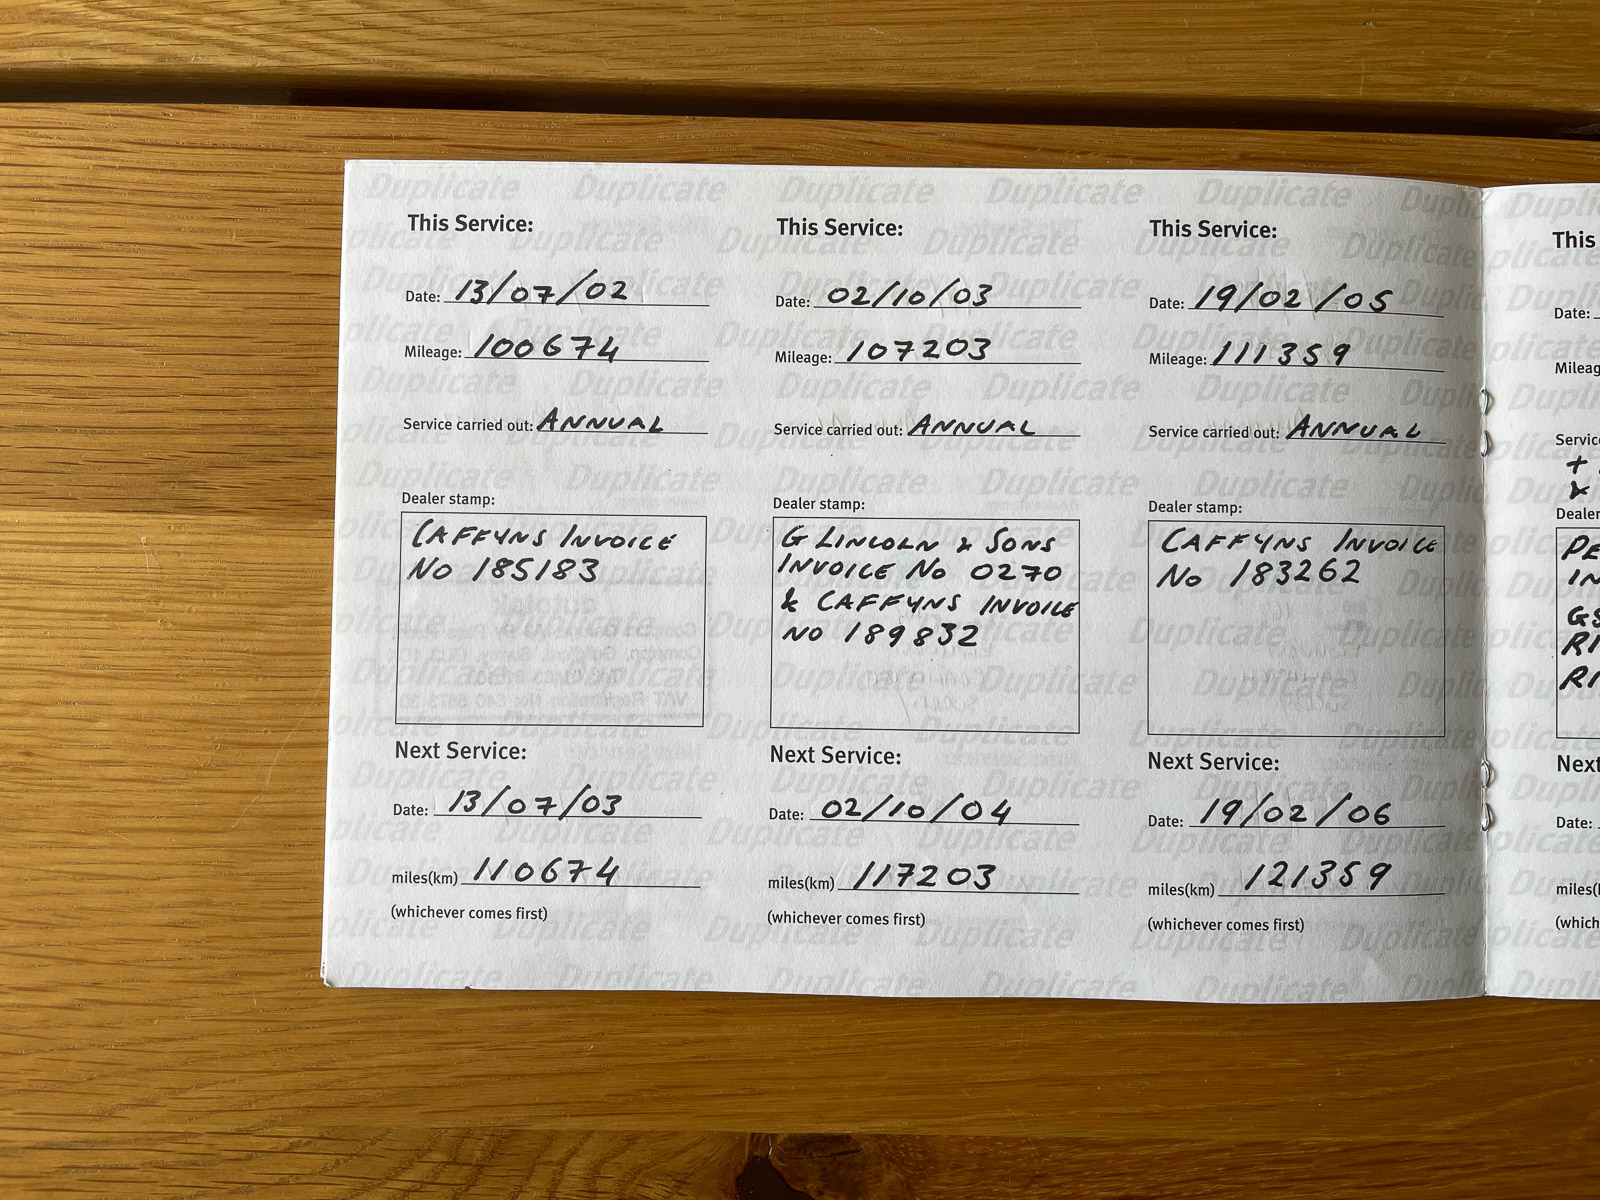 This Service:
Date: 13/07/02
Mileage: 100674
Service carried out: ANNUAL
Dealer stamp:
CAFFYNS INVOICE
NO 185183
Next Service:
Date: 13/07/03
miles(km) 110674
(whichever comes first)
This Service:
Date: 02/10/03
Mileage: 107203
Service carried out: ANNUAL
Dealer stamp:
G LINCOLN & SONS
INVOICE NO 0270
& CAFFYNS INVOICE
NO 189832
Next Service:
Date: 02/10/04
miles(km) 117203
(whichever comes first)
This Service:
Date: 19/02/05
Mileage: 111359
Service carried out: ANNUAL
Dealer stamp:
CAFFYNS INVOICE
NO 183262
Next Service:
Date: 19/02/06
miles(km) 121359
(whichever comes first)
This
Date:
Duplicate